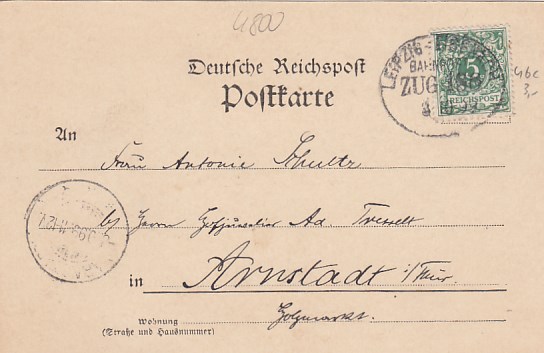 4800
Deutsche Reichspost
Postkarte
LEIPZIG
BAHNPOST
ZUG
5
REICHSPOST
46c
3,-
An
Frau Antonie Schultz
bei Herrn Hofjuwelier Ad. Tresselt
in Arnstadt i/Thür.
Holzmarkt.
Wohnung
(Straße und Hausnummer)